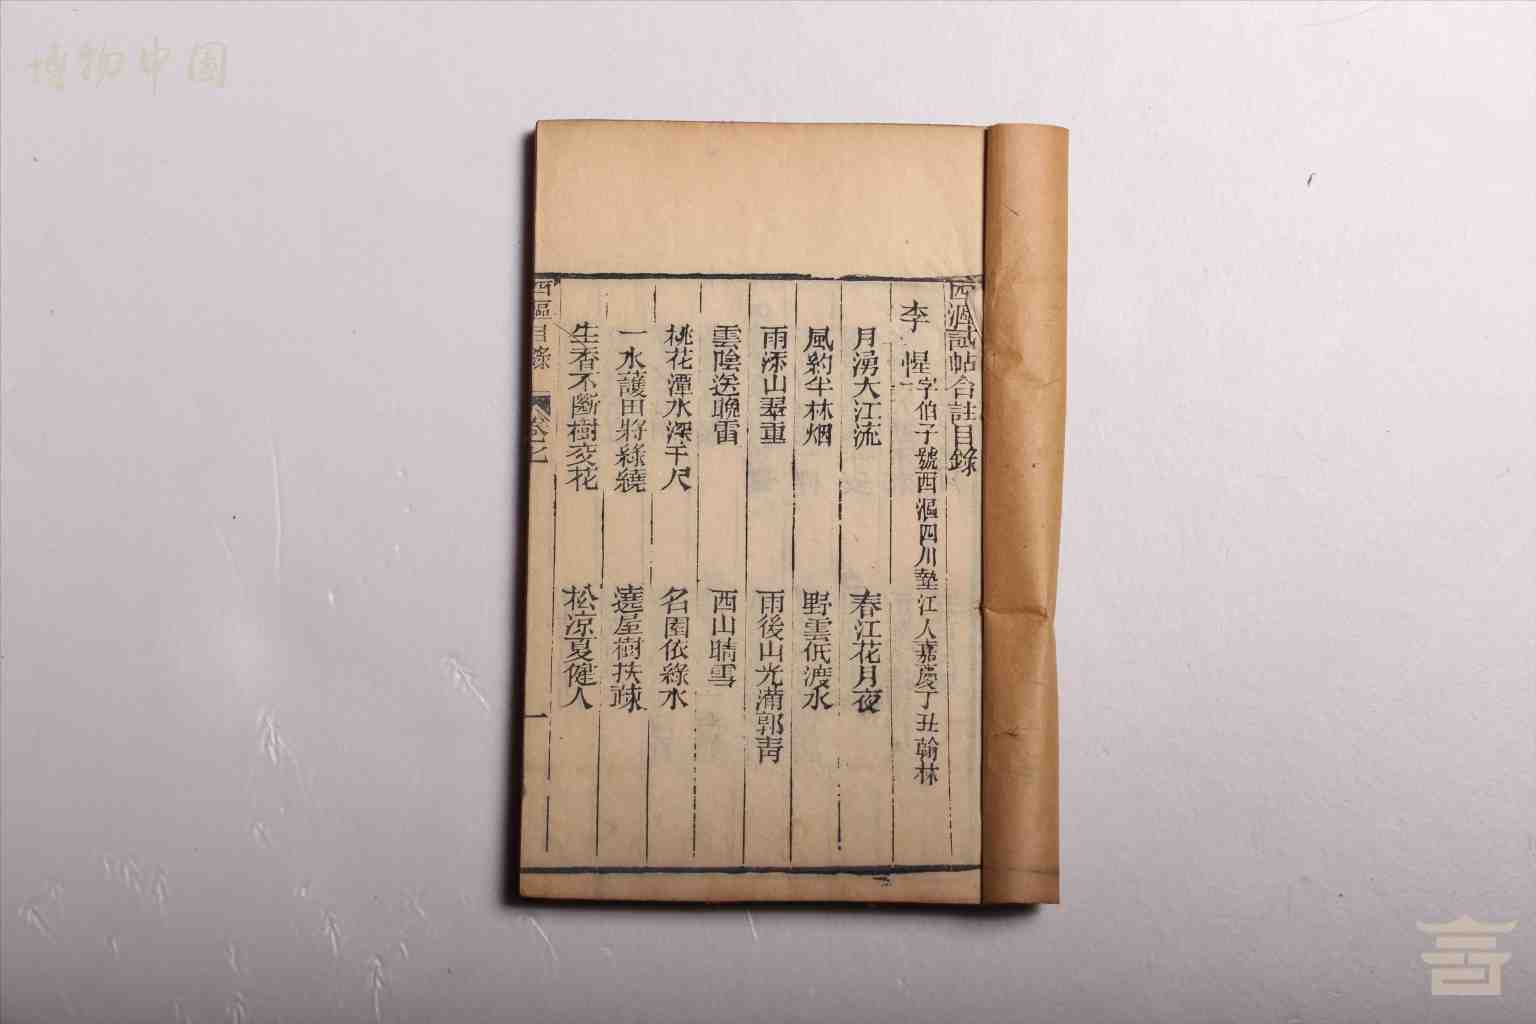 博物中国
西漚試帖合註目錄
李惺字伯子號西漚四川墊江人嘉慶丁丑翰林
月湧大江流 春江花月夜
風約半林烟 野雲低渡水
雨添山翠重 雨後山光滿郭青
雲陰送晚雷 西山晴雪
桃花潭水深千尺 名園依綠水
一水護田將綠繞 遶屋樹扶疎
生香不斷樹交花 松涼夏健人
西漚目錄 卷七 一